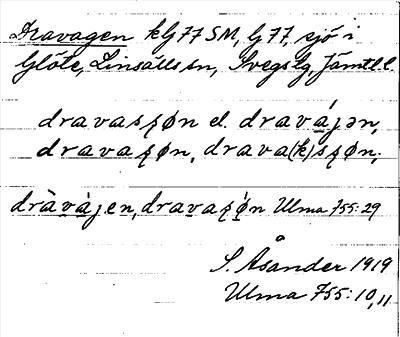 Dravagen kG 77 SM, G 77, sjö i
Glöte, Linsälls sn, Svegs tg, Jämtl. l.
dravasʂøn el. dravájən,
dravaʂøn, drava(k)sʂøn;
dràvájen, dravaʂǿn Ulma 755:29
S. Åsander 1919
Ulma 755:10,11